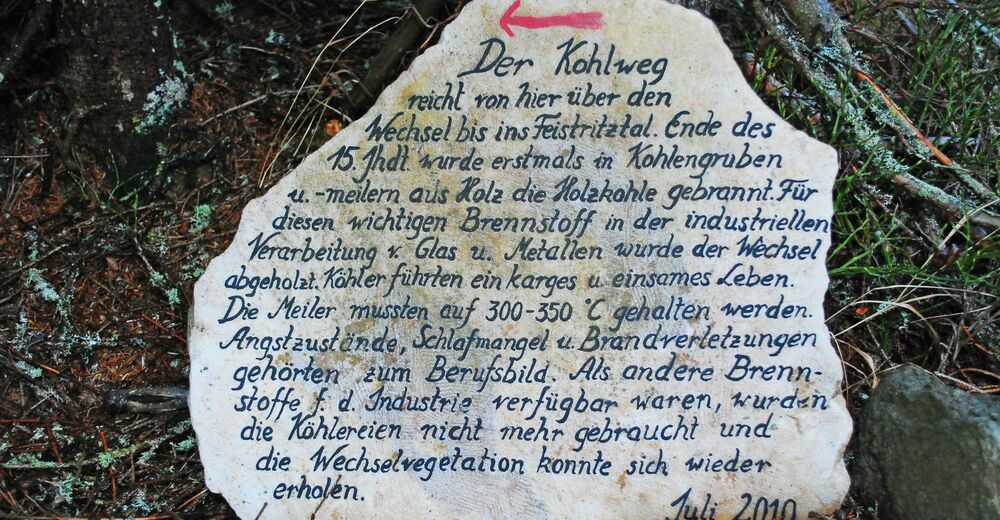 Der Kohlweg
reicht von hier über den
Wechsel bis ins Feistritztal. Ende des
15. Jhdt. wurde erstmals in Kohlengruben
u. -meilern aus Holz die Holzkohle gebrannt. Für
diesen wichtigen Brennstoff in der industriellen
Verarbeitung v. Glas u. Metallen wurde der Wechsel
abgeholzt. Köhler führten ein karges u. einsames Leben.
Die Meiler mussten auf 300-350 °C gehalten werden.
Angstzustände, Schlafmangel u. Brandverletzungen
gehörten zum Berufsbild. Als andere Brenn-
stoffe f. d. Industrie verfügbar waren, wurden
die Köhlereien nicht mehr gebraucht und
die Wechselvegetation konnte sich wieder
erholen.
Juli 2010